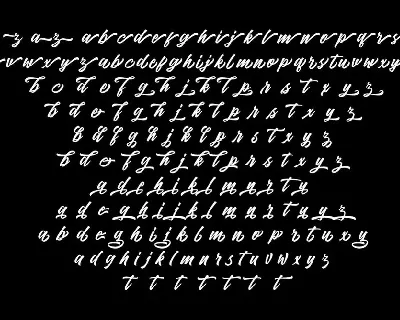 z a z abcdefghijklmnopqrs
vwxyzabcdefghijklmnopqrstuvwxy
b c d e f g h j k l p r s t x y z
b d e f g h j k l p r s t x y z
b d f g h j k l p r s t x y z
b d e f g h j k l p r s t x y z
a d e h i k l m n r t y
a d e g h i j k l m n r t u y z
a b d e g h i j k l m n o p r t u x y
a d g h i j k l m n r s t u v w x y z
t t t t t t t